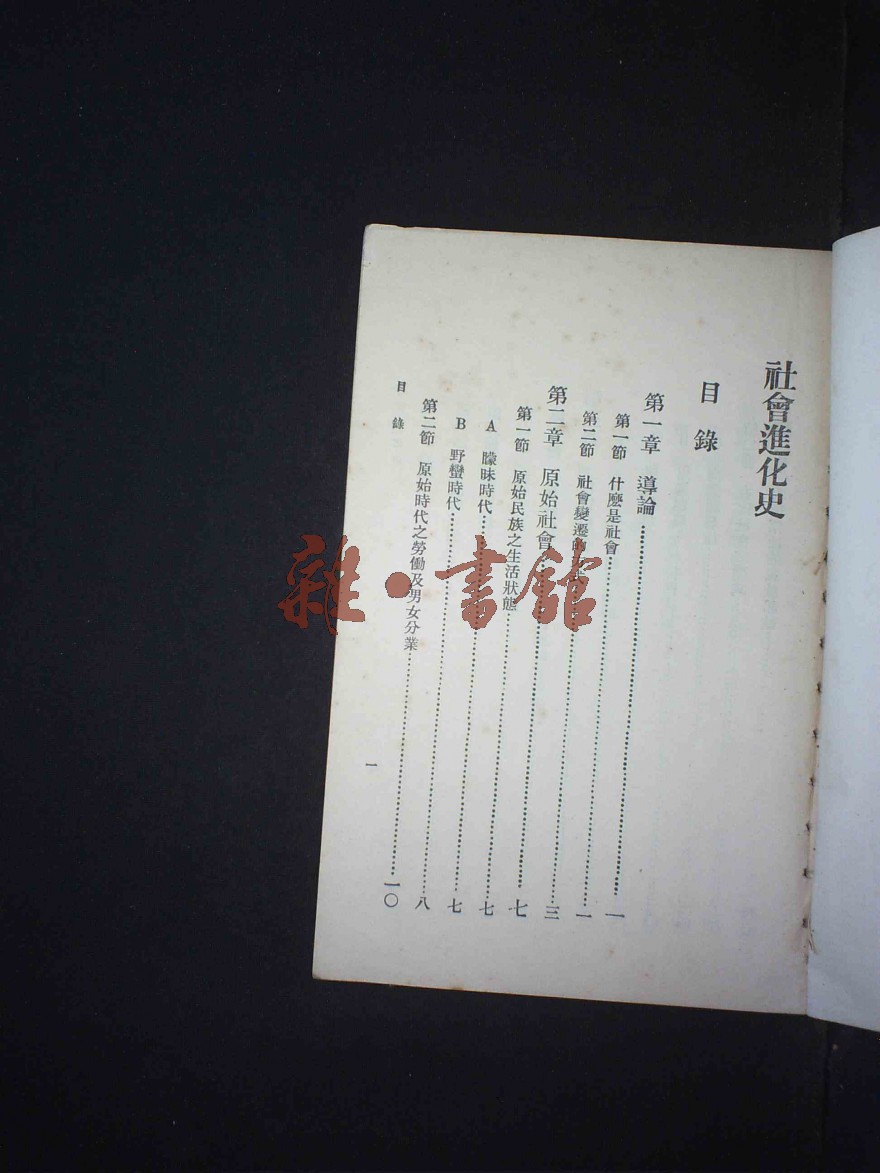 社會進化史
目錄
第一章 導論……一
第一節 什麼是社會……一
第二節 社會變遷……三
第二章 原始社會……七
第一節 原始民族之生活狀態……七
A 朦昧時代……七
B 野蠻時代……八
第二節 原始時代之勞働及男女分業……一〇
目錄
一
雜·書館